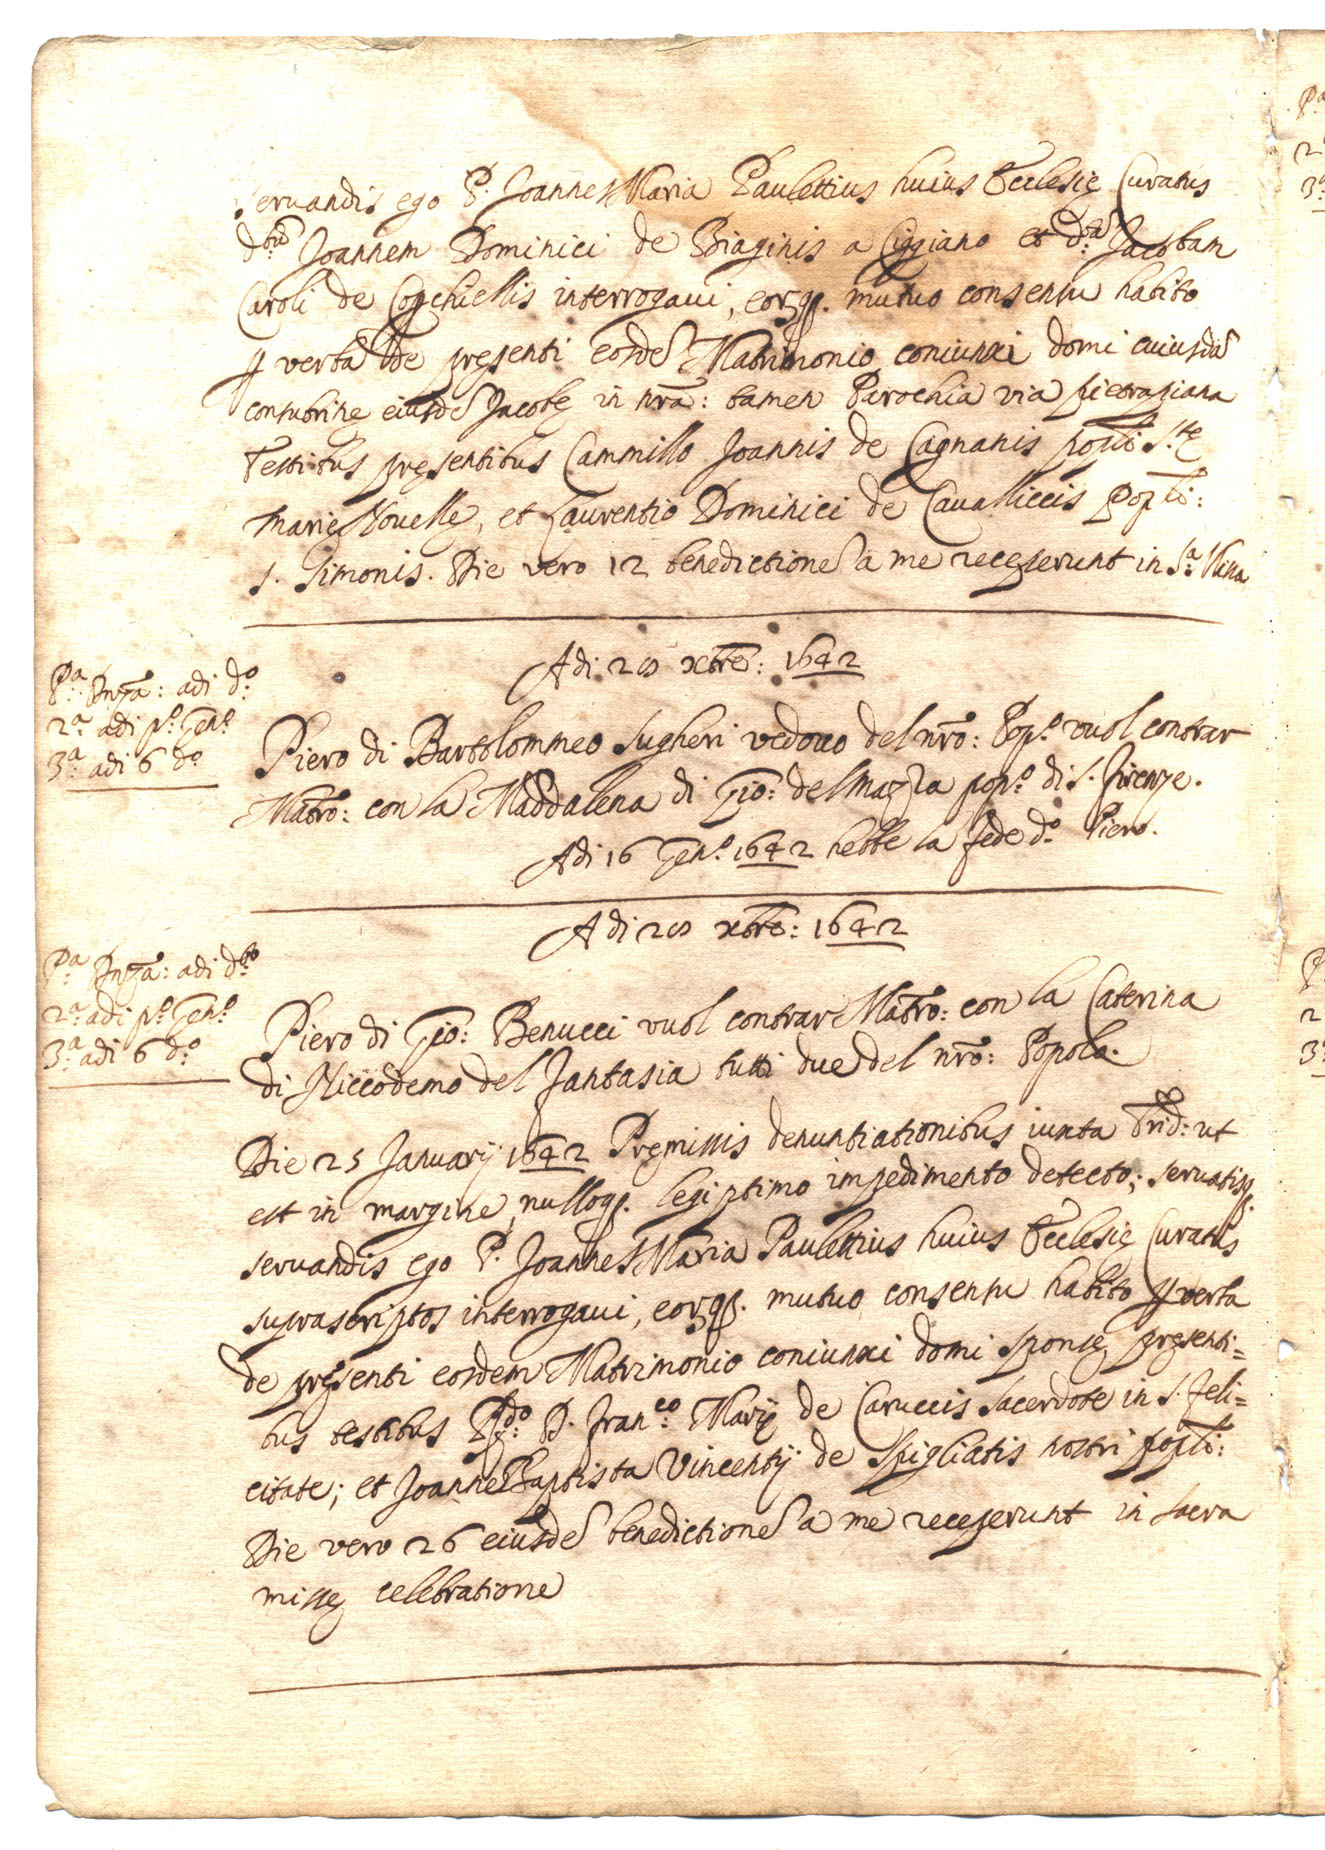 seruandis ego P. Joannes Maria Paulettius huius Ecclesię Curatus
d.tũ Joannem Dominici de Biaginis a Ciggiano et d.ã Jacobam
Caroli de Conchiellis interrogaui, eorq. mutuo consensu habito
p verba de pręsenti eosdẽ Matrimonio coniunxi domi cuiusdã
consubrinę eiusdẽ Jacobę in nrã: tamen Parochia via pietrapiana
Testibus pręsentibus Cammillo Joannis de Cagnanis popli S.tę
Marię Nouellę, et Laurentio Dominici de Cavalliccis Popli:
S. Simonis. Die vero 12 benedictionẽ a me receperunt in S.a Missa
Adi 20 xbre: 1642
P.a Dnza: adi d.o
2.a adi p.o Gen.o
3.a adi 6 d.o
Piero di Bartolommeo Sugheri vedouo del nro: Pop.o vuol contrar
Matro: con la Maddalena di Gio: del Mazza pop.o di S. Firenze.
Adi 16 Gen.o 1642 hebbe la fede d.o Piero.
Adi 20 xbre: 1642
P.a Dnza: adi d.to
2.a adi p.o Gen.o
3.a adi 6 d.o
Piero di Gio: Benucci vuol contrar Matro: con la Caterina
di Niccodemo del Fantasia tutti due del nro: Popolo.
Die 25 Januarij 1642 Pręmissis denuntiationibus iuxta Trid: ut
est in margine, nulloq. legiptimo impedimento detecto; seruatisq.
seruandis ego P. Joannes Maria Paulettius huius Ecclesię Curatus
suprascriptos interrogaui, eorq. mutuo consensu habito p verba
de pręsenti eosdem Matrimonio coniunxi domi sponsę pręsenti=
bus testibus R.do D. Fran.co Marię de Caruccis Sacerdote in S. Feli=
citate; et Joanne Baptista Vincentij de Sfigliatis nostri popli:
Die vero 26 eiusdẽ benedictionẽ a me receperunt in sacra
missę celebratione